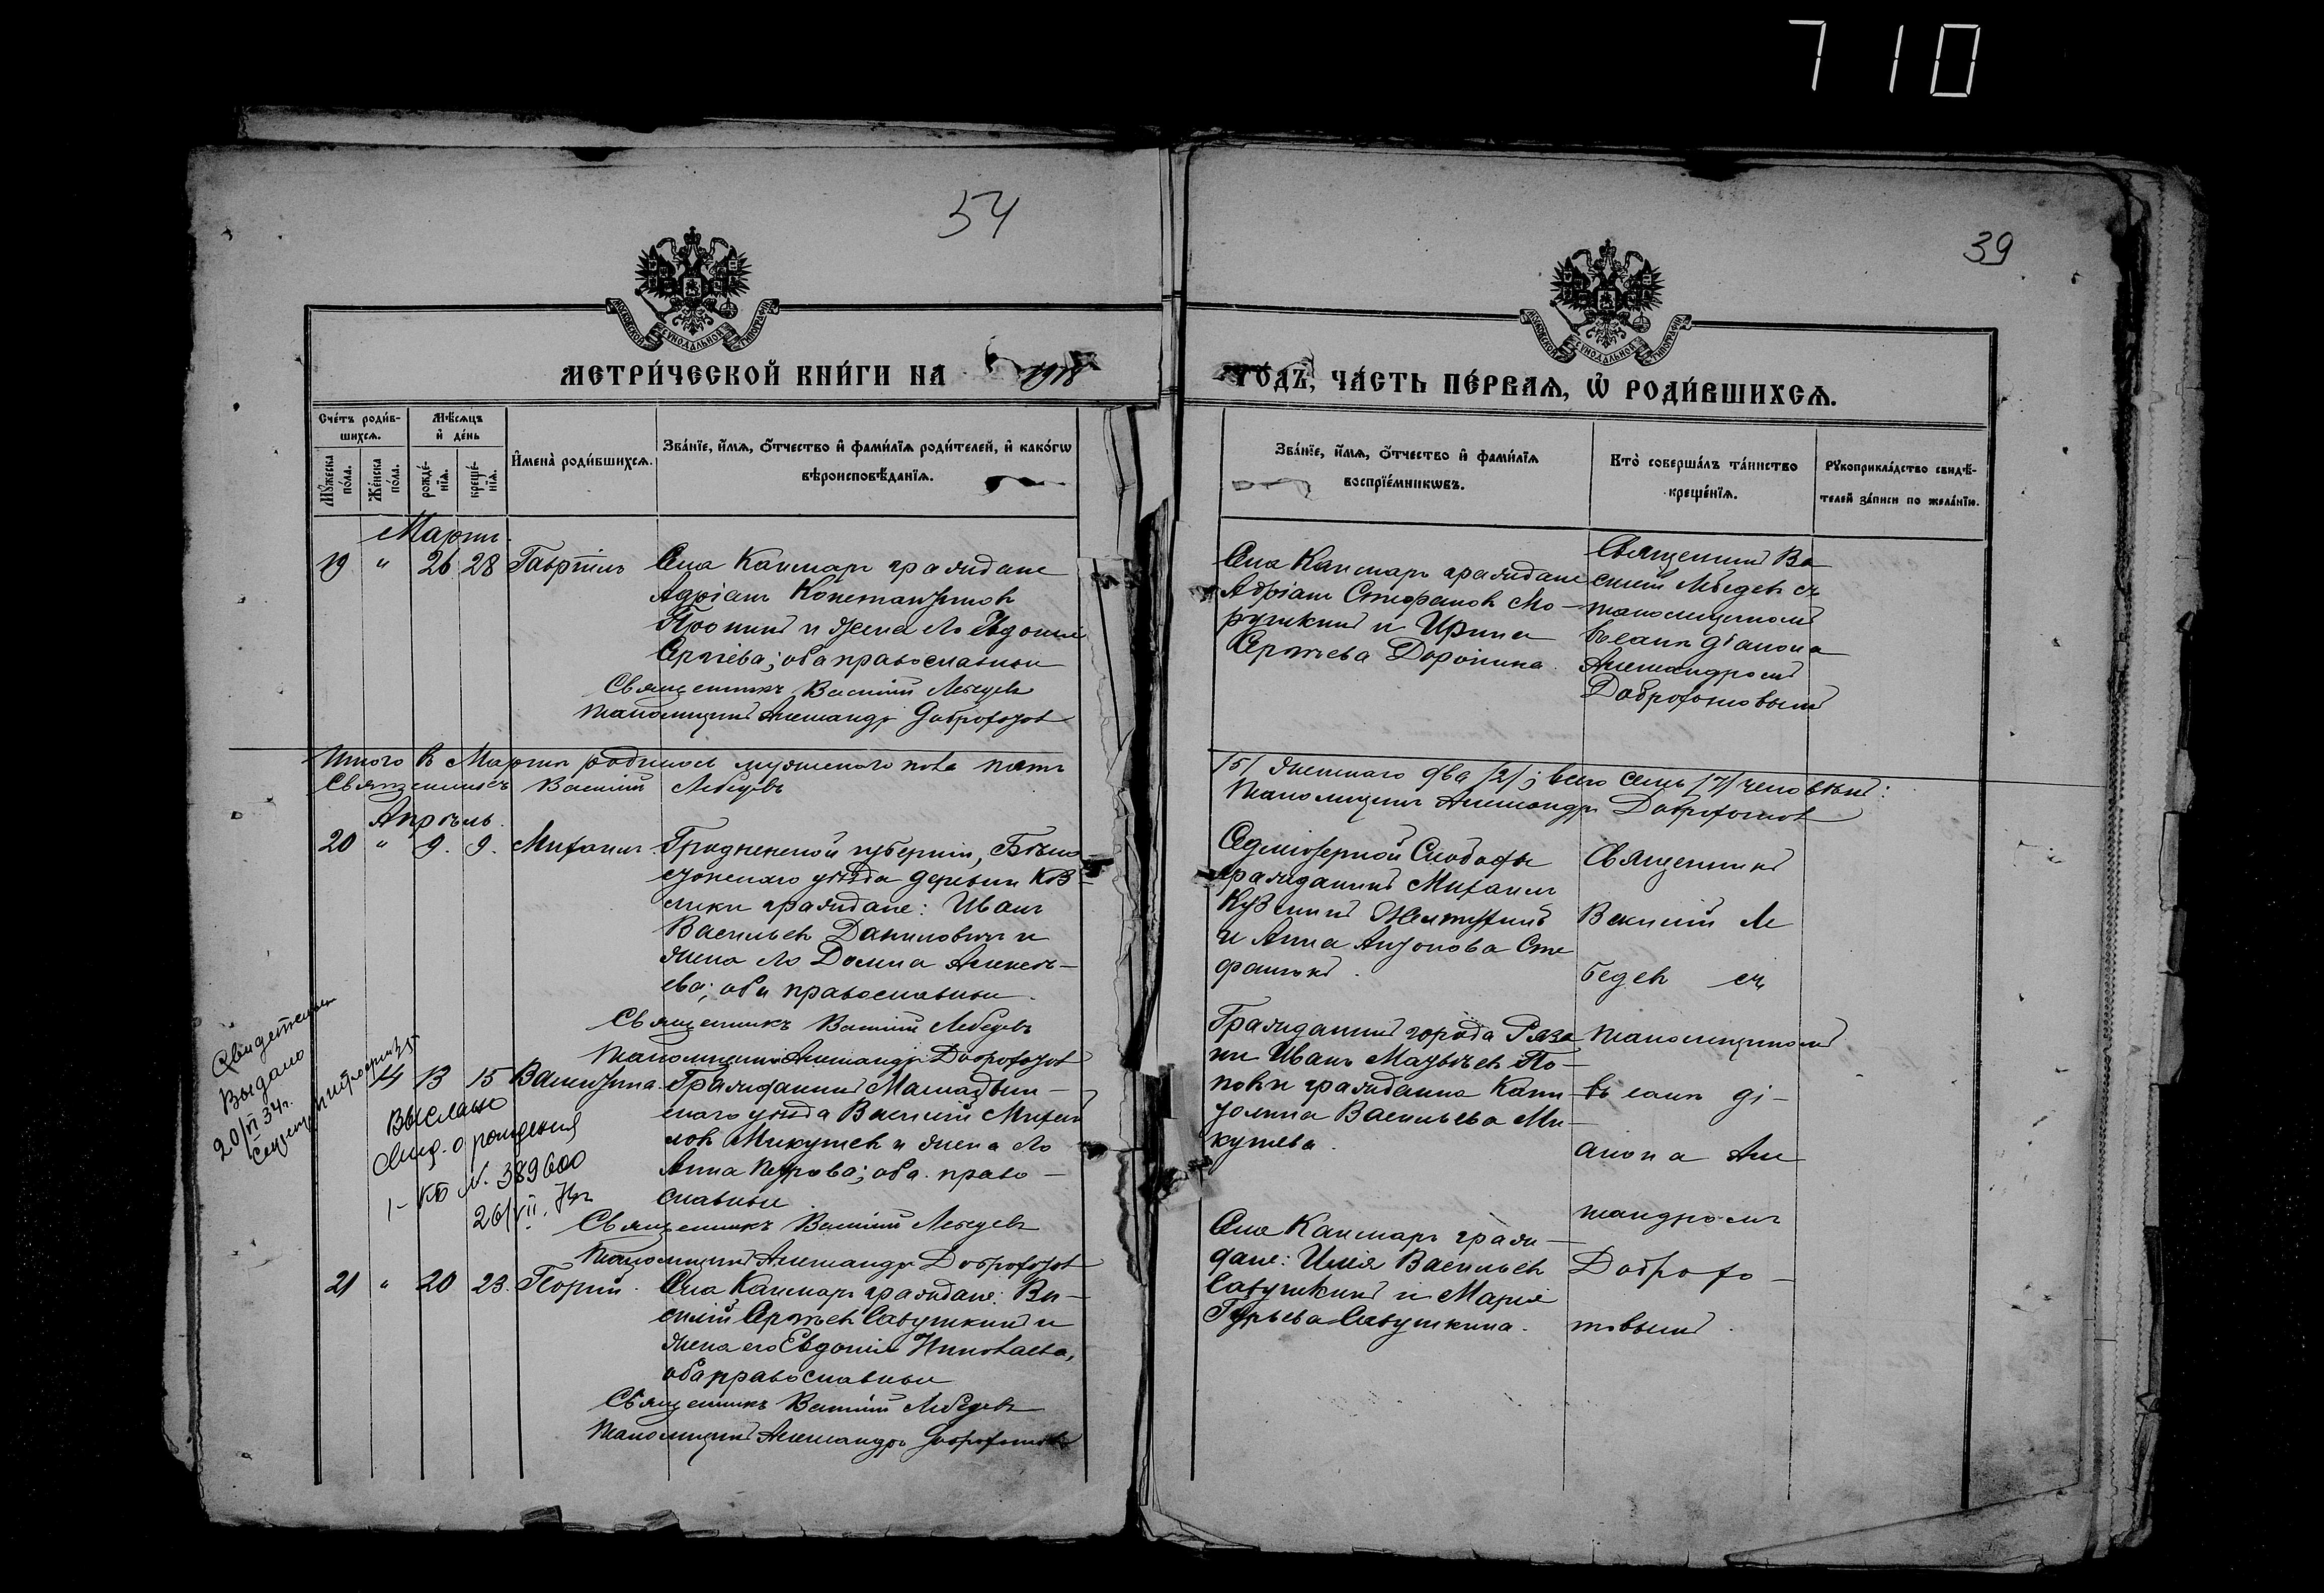 710
54
39
МОСКОВСКОЙ СѴНОДАЛЬНОЙ ТИПОГРАФІИ
МОСКОВСКОЙ СѴНОДАЛЬНОЙ ТИПОГРАФІИ
МЕТРИ́ЧЕСКОЙ КНИ́ГИ НА 1918
ГО́ДЪ, ЧА́СТЬ ПЕ́РВАѦ, Ѡ҆ РОДИ́ВШИХСѦ.
Сче́тъ роди́в-
шихсѧ.
Мꙋ́жеска по́ла.
Же́нска по́ла.
Мѣ́сѧцъ
и҆ де́нь
рожде́-
нїѧ.
креще́-
нїѧ.
И҆мена̀ роди́вшихсѧ.
Зва́нїе, и҆́мѧ, о҆́тчество и҆ фами́лїѧ роди́телей, и҆ како́гѡ
вѣроисповѣ́данїѧ.
Зва́нїе, и҆́мѧ, о҆́тчество и҆ фами́лїѧ
воспрїе́мникѡвъ.
Кто̀ соверша́лъ та́инство
креще́нїѧ.
Рꙋкоприкла́дство свидѣ́-
телей за́писи по жела́нїю.
Мартъ.
19 " 26 28 Гавріилъ Села Каймаръ граждане
Адріанъ Константиновъ
и жена его Евдокія
Сергіева; оба православные
Священникъ Василій Лебедевъ
Псаломщикъ Александръ Доброхотовъ
Села Каймаръ граждане
Адріанъ Стефановъ Мо-
и Ирина
Сергѣева Доронина.
Священникъ Ва
силій Лебедевъ съ
псаломщикомъ
въ санѣ діакона
Александромъ
Доброхотовымъ
Итого въ Мартѣ родилось мужескаго пола пять
/5/ женскаго два /2/; всего семь /7/ человѣкъ:
Священникъ Василій Лебедевъ
Псаломщикъ Александръ Доброхотовъ
Апрѣль.
20 " 9. 9. Михаилъ. Гродненской губерніи, Бѣло-
стокскаго уѣзда деревни Коз-
лики граждане: Иванъ
Васильевъ Даниловичъ и
жена его Домна Алексѣ-
ева; оба православные.
Священникъ Василій Лебедевъ
Псаломщикъ Александръ Доброхотовъ
Седміозерной Слободы
гражданинъ Михаилъ
Кузминъ
и Анна Антонова Сте
Священникъ
Василій Ле
бедевъ съ
псаломщикомъ
въ санѣ ді-
акона Алек
сандромъ
Доброхо-
товымъ.
Выдано
20/VI 34 г.
14 13 15 Валентина. Гражданинъ Мамадыш-
скаго уѣзда Василій Михай
ловъ Микушевъ и жена его
Анна Петрова; оба право-
славные
Священникъ Василій Лебедевъ
Псаломщикъ Александръ Доброхотовъ
Выслано
о рождения
N. 389600
Гражданинъ города Ряза
ни Иванъ Матвѣевъ По-
повъ и гражданка Капи
толина Васильева Ми-
кушева.
21 " 20 23. Георгій. Села Каймаръ граждане: Ва-
силій Сергѣевъ Савушкинъ и
жена его Евдокія Николаева,
оба православные
Священникъ Василій Лебедевъ
Псаломщикъ Александръ Доброхотовъ
Села Каймаръ граж-
дане: Илія Васильевъ
Савушкинъ и Марія
Гурьева Савушкина.